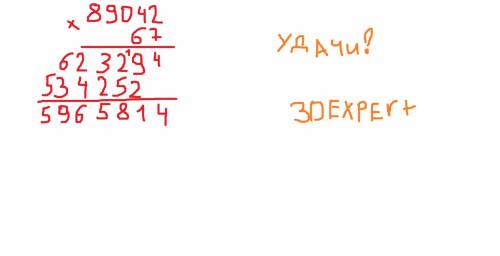 × 89042
67
62 32¹9 4
534252
5965814
УДАЧИ?
3DEXPErt